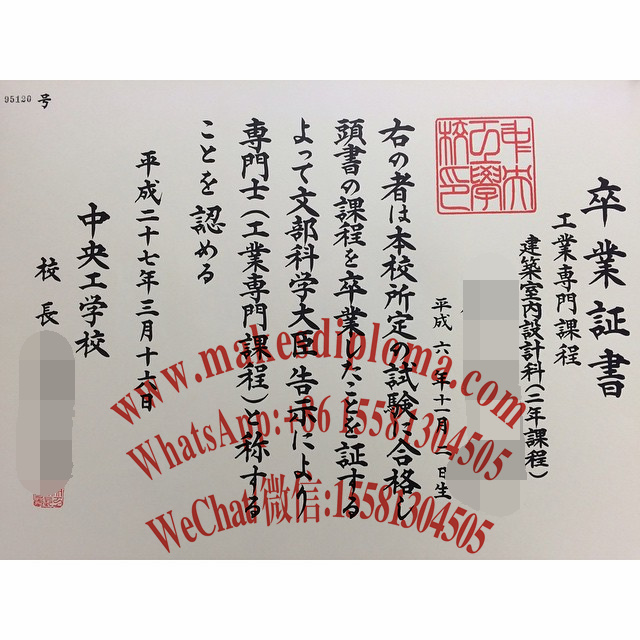 卒業証書
工業専門課程
建築室内設計科(二年課程)
平成六年十一月二日生
右の者は本校所定の試験に合格し
頭書の課程を卒業したことを証する
よって文部科学大臣告示により
専門士(工業専門課程)と称する
ことを認める
平成二十七年三月十六日
中央工学校
校長
95120 号
中央工学校印
www.makeadiploma.com
WhatsApp:+86 15581304505
WeChat/微信:15581304505